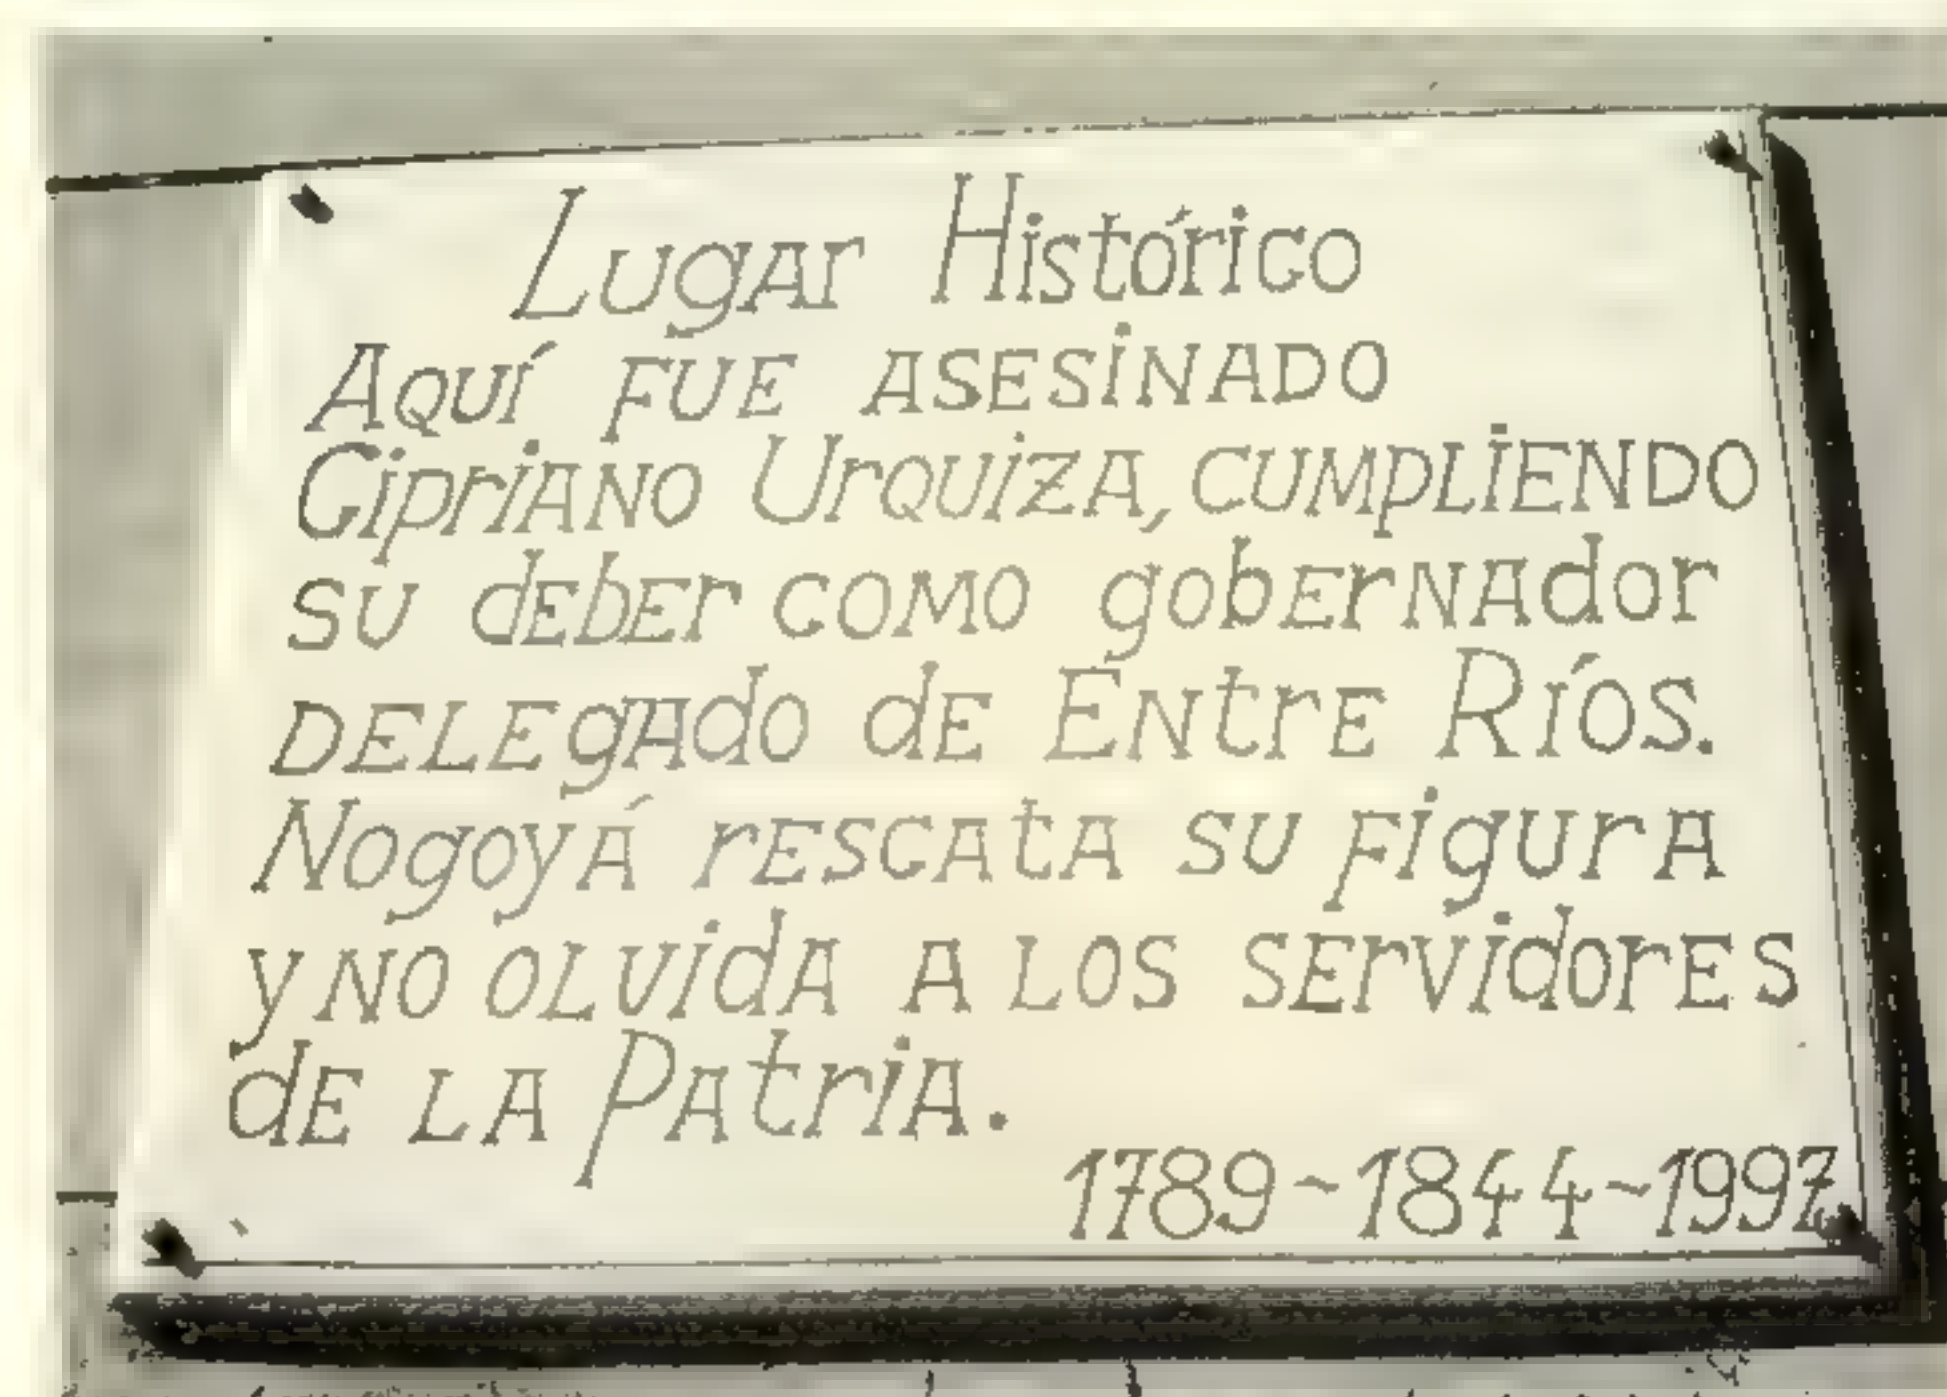 Lugar Histórico
Aquí fue asesinado
Cipriano Urquiza, cumpliendo
su deber como gobernador
delegado de Entre Ríos.
Nogoyá rescata su figura
y no olvida a los servidores
de la Patria.
1789~1844~1997